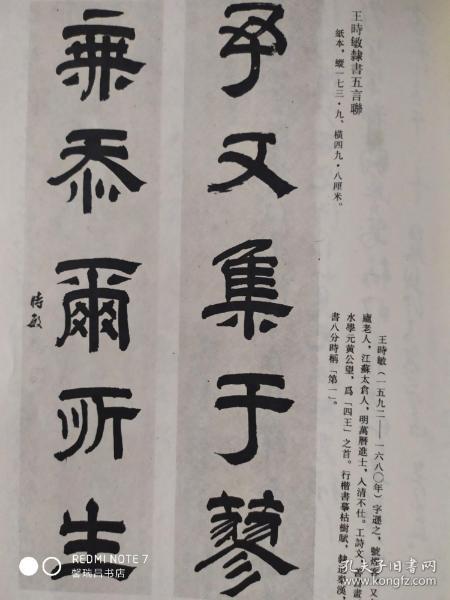 王時敏隸書五言聯
紙本，縱一七三·九、橫四九·八厘米。
予又集于蓼
無忝爾所生
時敏
王時敏（一五九二——一六八〇年）字遜之，號 又
廬老人，江蘇太倉人，明萬曆進士，入清不仕。工詩文 畫
水學元黃公望，爲「四王」之首。行楷書摹枯樹賦，隸
書八分時稱「第一」。
REDMI NOTE 7
馨瑞昌书店
孔夫子旧书网
book.kongfz.com